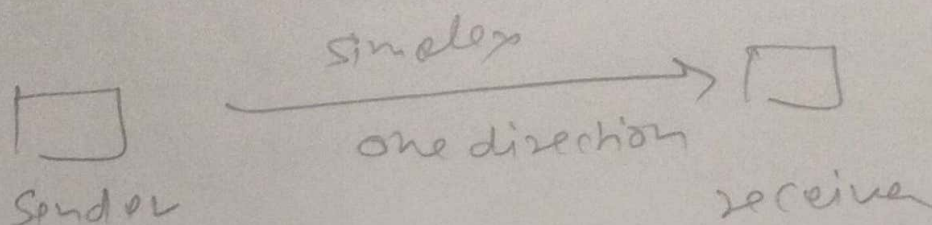 simplex
one direction
Sender
receiver